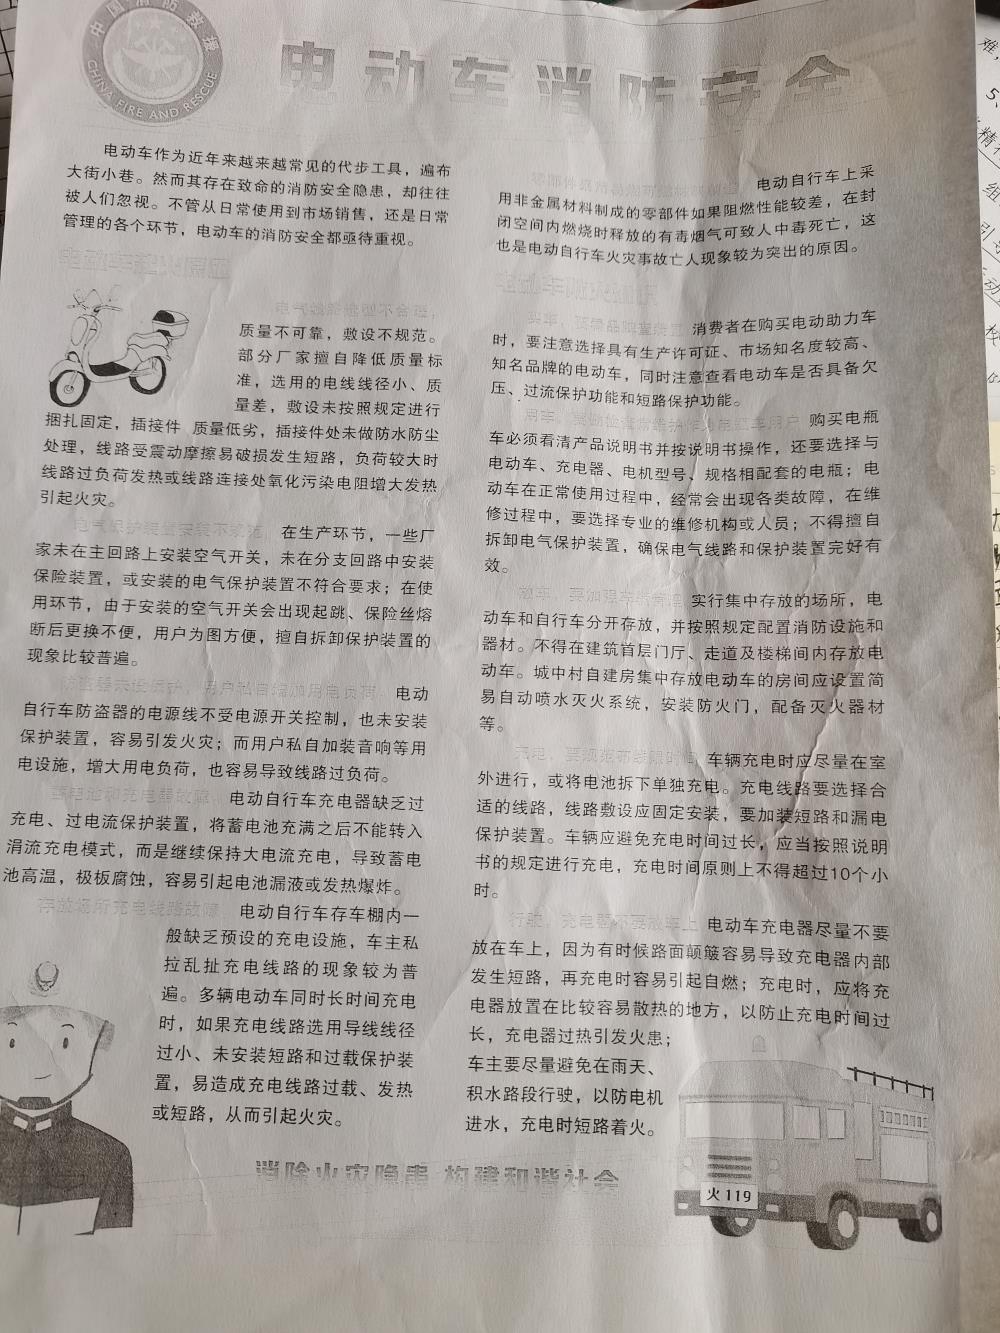 中国消防救援
CHINA FIRE AND RESCUE
电动车消防安全
电动车作为近年来越来越常见的代步工具，遍布
大街小巷。然而其存在致命的消防安全隐患，却往往
被人们忽视。不管从日常使用到市场销售，还是日常
管理的各个环节，电动车的消防安全都亟待重视。
质量不可靠，敷设不规范。
部分厂家擅自降低质量标
准，选用的电线线径小、质
量差，敷设未按照规定进行
捆扎固定，插接件 质量低劣，插接件处未做防水防尘
处理，线路受震动摩擦易破损发生短路，负荷较大时
线路过负荷发热或线路连接处氧化污染电阻增大发热
引起火灾。
电气保护装置安装不规范 在生产环节，一些厂
家未在主回路上安装空气开关，未在分支回路中安装
保险装置，或安装的电气保护装置不符合要求；在使
用环节，由于安装的空气开关会出现起跳、保险丝熔
断后更换不便，用户为图方便，擅自拆卸保护装置的
现象比较普遍。
防盗器未设保护，用户私自增加用电负荷 电动
自行车防盗器的电源线不受电源开关控制，也未安装
保护装置，容易引发火灾；而用户私自加装音响等用
电设施，增大用电负荷，也容易导致线路过负荷。
电动自行车充电器缺乏过
充电、过电流保护装置，将蓄电池充满之后不能转入
涓流充电模式，而是继续保持大电流充电，导致蓄电
池高温，极板腐蚀，容易引起电池漏液或发热爆炸。
存放场所充电线路故障 电动自行车存车棚内一
般缺乏预设的充电设施，车主私
拉乱扯充电线路的现象较为普
遍。多辆电动车同时长时间充电
时，如果充电线路选用导线线径
过小、未安装短路和过载保护装
置，易造成充电线路过载、发热
或短路，从而引起火灾。
电动自行车上采
用非金属材料制成的零部件如果阻燃性能较差，在封
闭空间内燃烧时释放的有毒烟气可致人中毒死亡，这
也是电动自行车火灾事故亡人现象较为突出的原因。
消费者在购买电动助力车
时，要注意选择具有生产许可证、市场知名度较高、
知名品牌的电动车，同时注意查看电动车是否具备欠
压、过流保护功能和短路保护功能。
购买电瓶
车必须看清产品说明书并按说明书操作，还要选择与
电动车、充电器、电机型号、规格相配套的电瓶；电
动车在正常使用过程中，经常会出现各类故障，在维
修过程中，要选择专业的维修机构或人员；不得擅自
拆卸电气保护装置，确保电气线路和保护装置完好有
效。
实行集中存放的场所，电
动车和自行车分开存放，并按照规定配置消防设施和
器材。不得在建筑首层门厅、走道及楼梯间内存放电
动车。城中村自建房集中存放电动车的房间应设置简
易自动喷水灭火系统，安装防火门，配备灭火器材
等。
车辆充电时应尽量在室
外进行，或将电池拆下单独充电。充电线路要选择合
适的线路，线路敷设应固定安装，要加装短路和漏电
保护装置。车辆应避免充电时间过长，应当按照说明
书的规定进行充电，充电时间原则上不得超过10个小
时。
行驶，充电器不要放车上 电动车充电器尽量不要
放在车上，因为有时候路面颠簸容易导致充电器内部
发生短路，再充电时容易引起自燃；充电时，应将充
电器放置在比较容易散热的地方，以防止充电时间过
长，充电器过热引发火患；
车主要尽量避免在雨天、
积水路段行驶，以防电机
进水，充电时短路着火。
火 119
消除火灾隐患 构建和谐社会